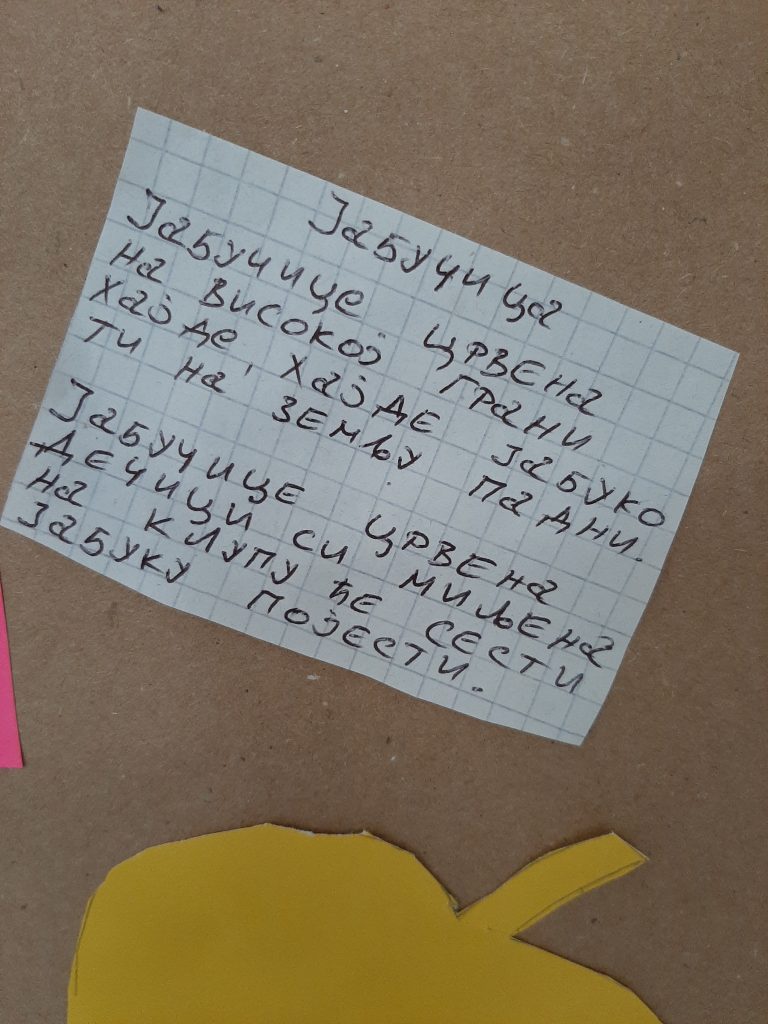 Јабучица
Јабучице црвена
на високој грани
хајде, хајде јабуко
ти на земљу падни.
Јабучице црвена
дечици си миљена
на клупу ће сести
јабуку појести.